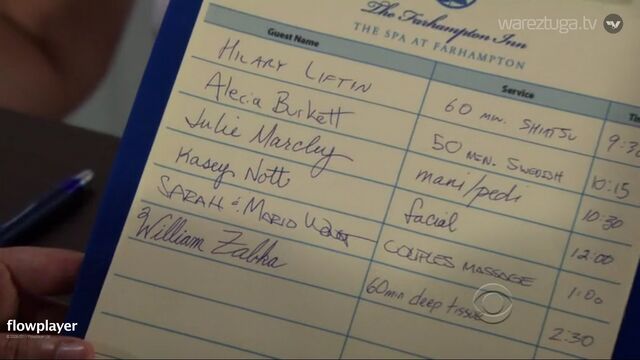 wareztuga.tv
The Farhampton Inn
THE SPA AT FARHAMPTON
Guest Name Service
HILARY LIFTIN 60 MIN. SHIATSU 9:30
Alecia Burkett 50 MIN. SWEDISH 10:15
Julie Marcley mani/pedi 10:30
Kasey Nott facial 12:00
SARAH & MARIO COUPLES MASSAGE 1:00
William Zabka 60min deep tissue 2:30
flowplayer